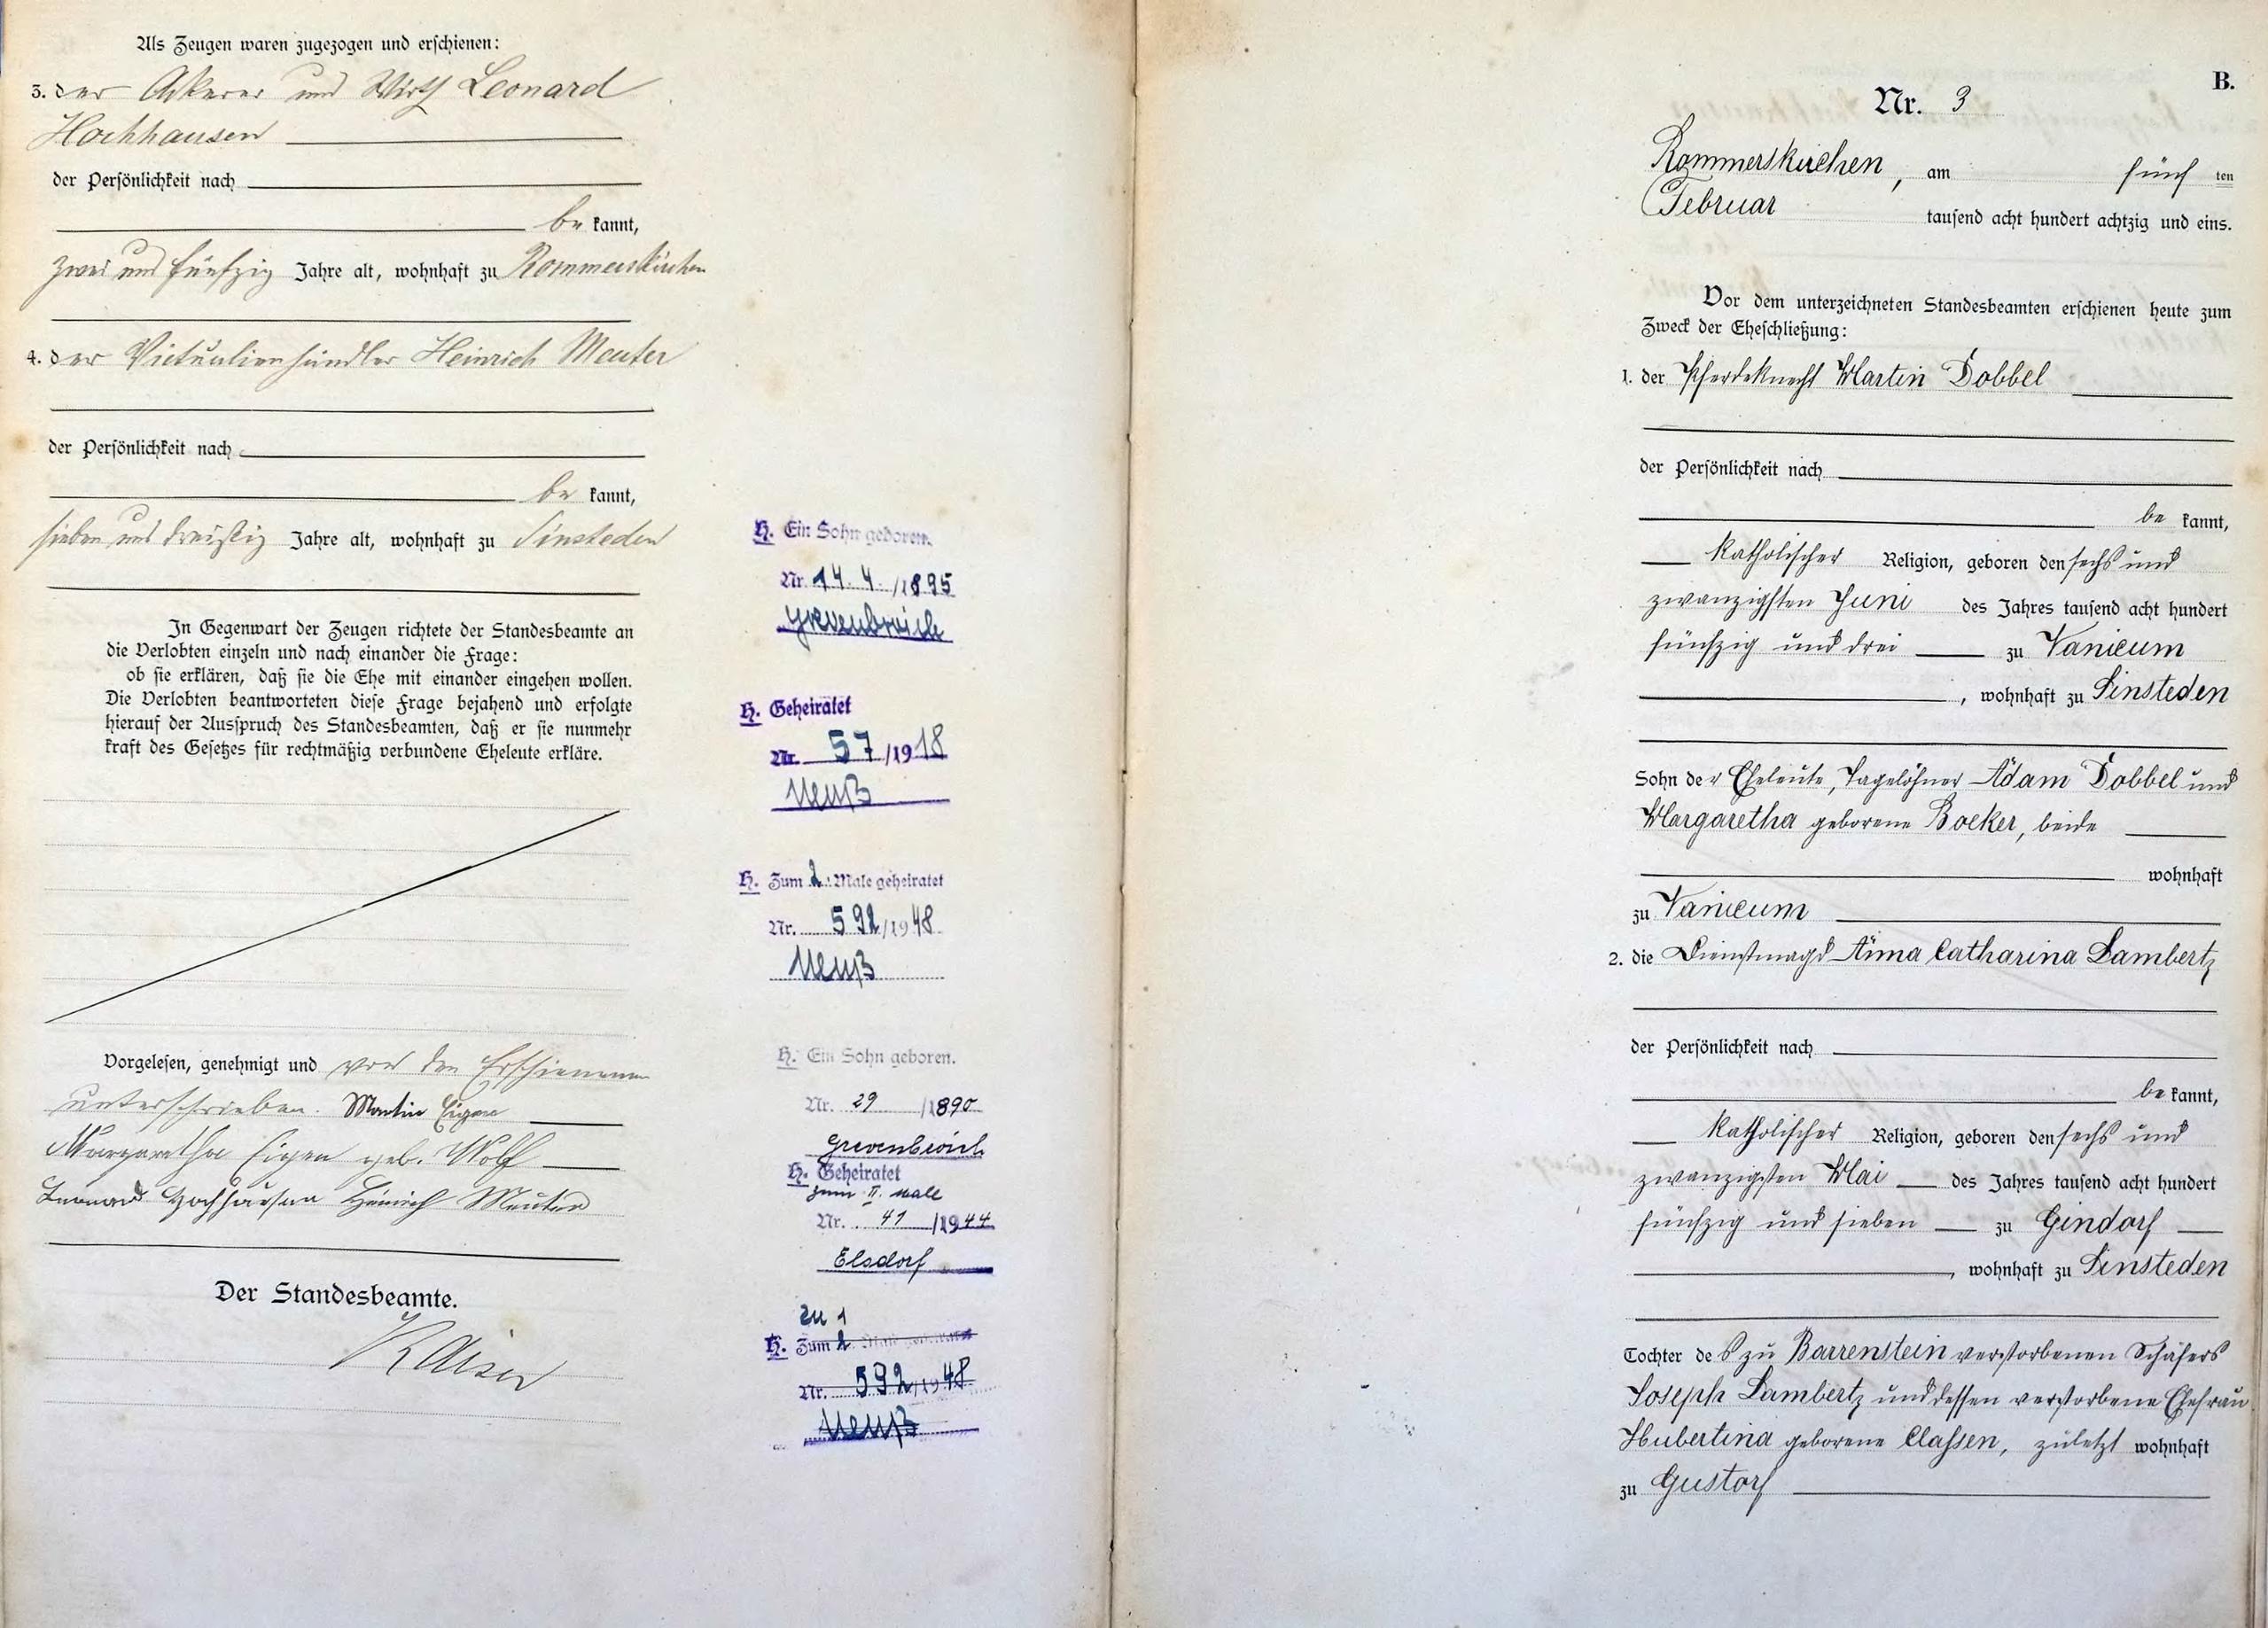 Als Zeugen waren zugezogen und erschienen:
3. der Ackerer und Wirth Leonard
Hochhausen
der Persönlichkeit nach
be kannt,
zwei und fünfzig Jahre alt, wohnhaft zu Rommerskirchen
4. der Victualienhändler Heinrich Meuter
der Persönlichkeit nach
be kannt,
sieben und dreißig Jahre alt, wohnhaft zu Sinsteden
In Gegenwart der Zeugen richtete der Standesbeamte an
die Verlobten einzeln und nach einander die Frage:
ob sie erklären, daß sie die Ehe mit einander eingehen wollen.
Die Verlobten beantworteten diese Frage bejahend und erfolgte
hierauf der Ausspruch des Standesbeamten, daß er sie nunmehr
kraft des Gesetzes für rechtmäßig verbundene Eheleute erkläre.
Vorgelesen, genehmigt und von den Erschienenen
unterschrieben. Martin Eigen
Margaretha Eigen geb. Wolff
Leonard Hochhausen Heinrich Meuter
Der Standesbeamte.
Kaiser
H. Ein Sohn geboren.
Nr. 14. 4. /1895
Grevenbroich
H. Geheiratet
Nr. 57/1918
Neuß
H. Zum 2. Male geheiratet
Nr. 592/1948
Neuß
H. Ein Sohn geboren.
Nr. 29 /1890
Grevenbroich
H. Geheiratet
zum II. Male
Nr. 41 /1944
Elsdorf
zu 1
H. Zum 2. Male geheiratet
Nr. 592/1948
Neuß
B.
Nr. 3
Rommerskirchen, am fünf ten
Februar tausend acht hundert achtzig und eins.
Vor dem unterzeichneten Standesbeamten erschienen heute zum
Zweck der Eheschließung:
1. der Pferdeknecht Martin Dobbel
der Persönlichkeit nach
be kannt,
katholischer Religion, geboren den sechs und
zwanzigsten Juni des Jahres tausend acht hundert
fünfzig und drei zu Vanicum
, wohnhaft zu Sinsteden
Sohn der Eheleute, Tagelöhner Adam Dobbel und
Margaretha geborene Boeker, beide
wohnhaft
zu Vanicum
2. die Dienstmagd Anna Catharina Lambertz
der Persönlichkeit nach
be kannt,
katholischer Religion, geboren den sechs und
zwanzigsten Mai des Jahres tausend acht hundert
fünfzig und sieben zu Gindorf
, wohnhaft zu Sinsteden
Tochter des zu Barrenstein verstorbenen Schäfers
Joseph Lambertz und dessen verstorbene Ehefrau
Hubertina geborene Classen, zuletzt wohnhaft
zu Gustorf